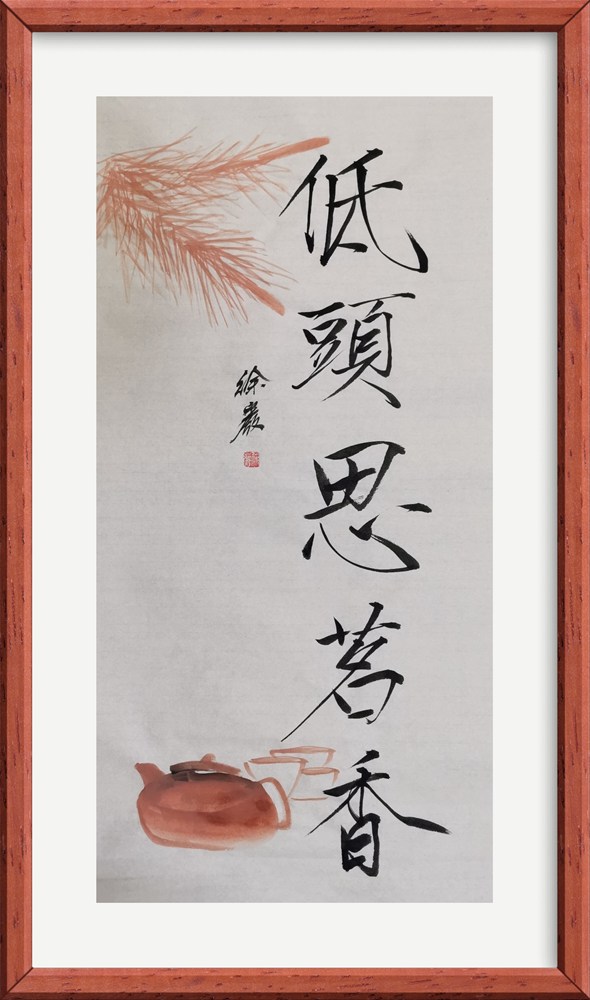 低頭思茗香
徐巖